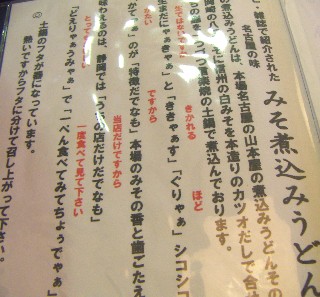 雑誌で紹介された
みそ煮込みうどん
名古屋の味
煮込みうどんは、本場名古屋の山本屋の煮込みうどんその
信州の白みそを本造りのカツオだしで合
つ音楽焼の土鍋で煮込んでおります。
きかれる
ほど
生まだにゃぁきゃぁ」とききゃぁす」「ぐりゃぁ」シコシコ
みたい
ですから
かてゃぁ」のが「特徴だでなも」本場のみその香と歯ごたえ
当店だけですから
味わえるのは、静岡では「うちの店だけだでなも」
とっても
一度食べて見て下さい
「どえりゃぁうみゃぁ」で「一ぺん食べてみてちょうでゃぁ」
◎土鍋のフタが器になっています。
熱いですからフタに分けて召し上がって下さい。